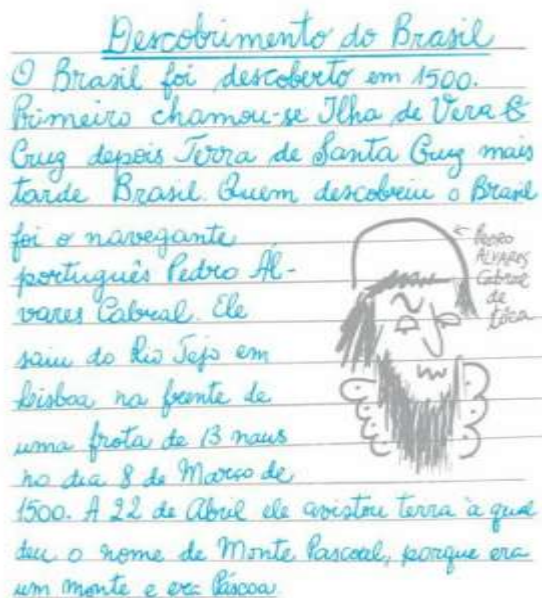 Descobrimento do Brasil
O Brasil foi descoberto em 1500.
Primeiro chamou-se Ilha de Vera
Cruz depois Terra de Santa Cruz mais
tarde Brasil. Quem descobriu o Brasil
foi o navegante
português Pedro Ál-
vares Cabral. Ele
saiu do Rio Tejo em
Lisboa na frente de
uma frota de 13 naus
no dia 8 de Março de
1500. A 22 de Abril ele avistou terra à qual
deu o nome de Monte Pascoal, porque era
um monte e era Páscoa
← PEDRO
ÁLVARES
Cabral
de
tôca